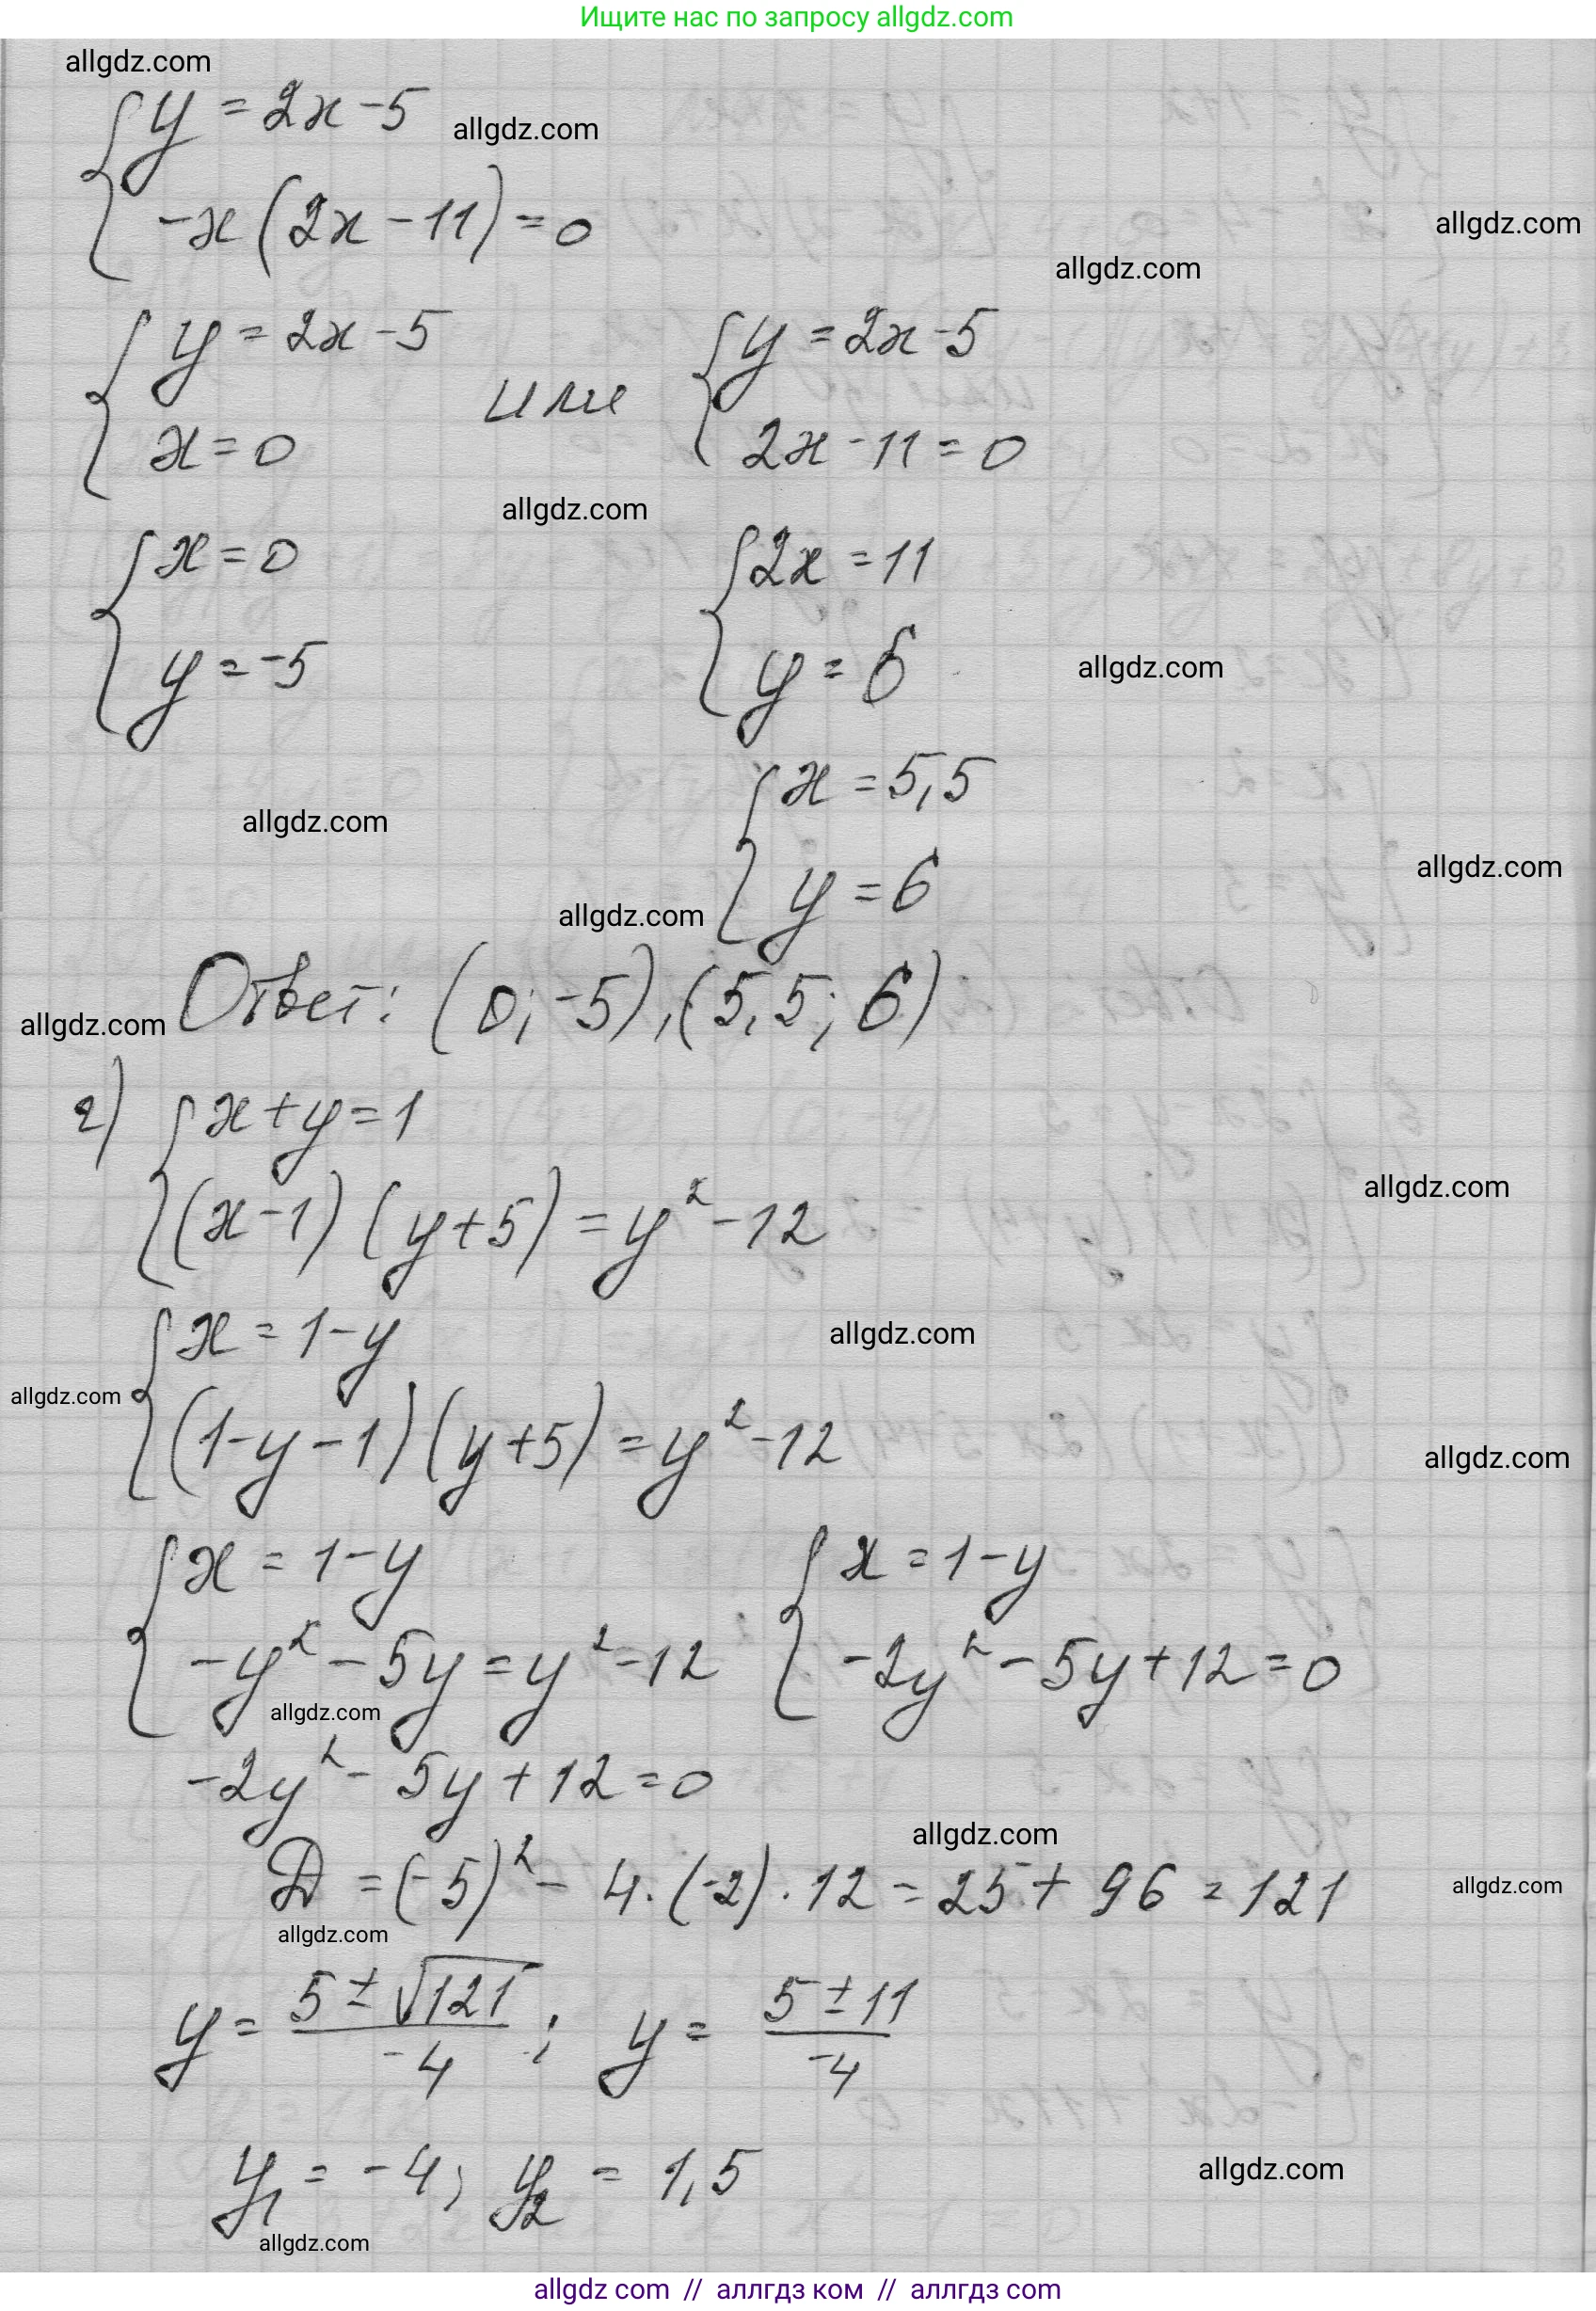 Ищите нас по запросу allgdz.com
allgdz.com
y = 2x - 5
allgdz.com
-x(2x - 11) = 0
allgdz.com
allgdz.com
y = 2x - 5 или y = 2x - 5
x = 0 2x - 11 = 0
allgdz.com
x = 0 2x = 11
y = -5 y = 6
allgdz.com
x = 5,5
allgdz.com
allgdz.com
y = 6
allgdz.com
Ответ: (0; -5), (5,5; 6)
allgdz.com
г) x + y = 1
allgdz.com
(x - 1)(y + 5) = y² - 12
x = 1 - y
allgdz.com
allgdz.com
(1 - y - 1)(y + 5) = y² - 12
allgdz.com
x = 1 - y x = 1 - y
-y² - 5y = y² - 12 -2y² - 5y + 12 = 0
allgdz.com
-2y² - 5y + 12 = 0
allgdz.com
D = (-5)² - 4 · (-2) · 12 = 25 + 96 = 121
allgdz.com
allgdz.com
y = (5 ± √121)/-4 ; y = (5 ± 11)/-4
y₁ = -4; y₂ = 1,5
allgdz.com
allgdz.com
allgdz com // аллгдз ком // аллгдз com